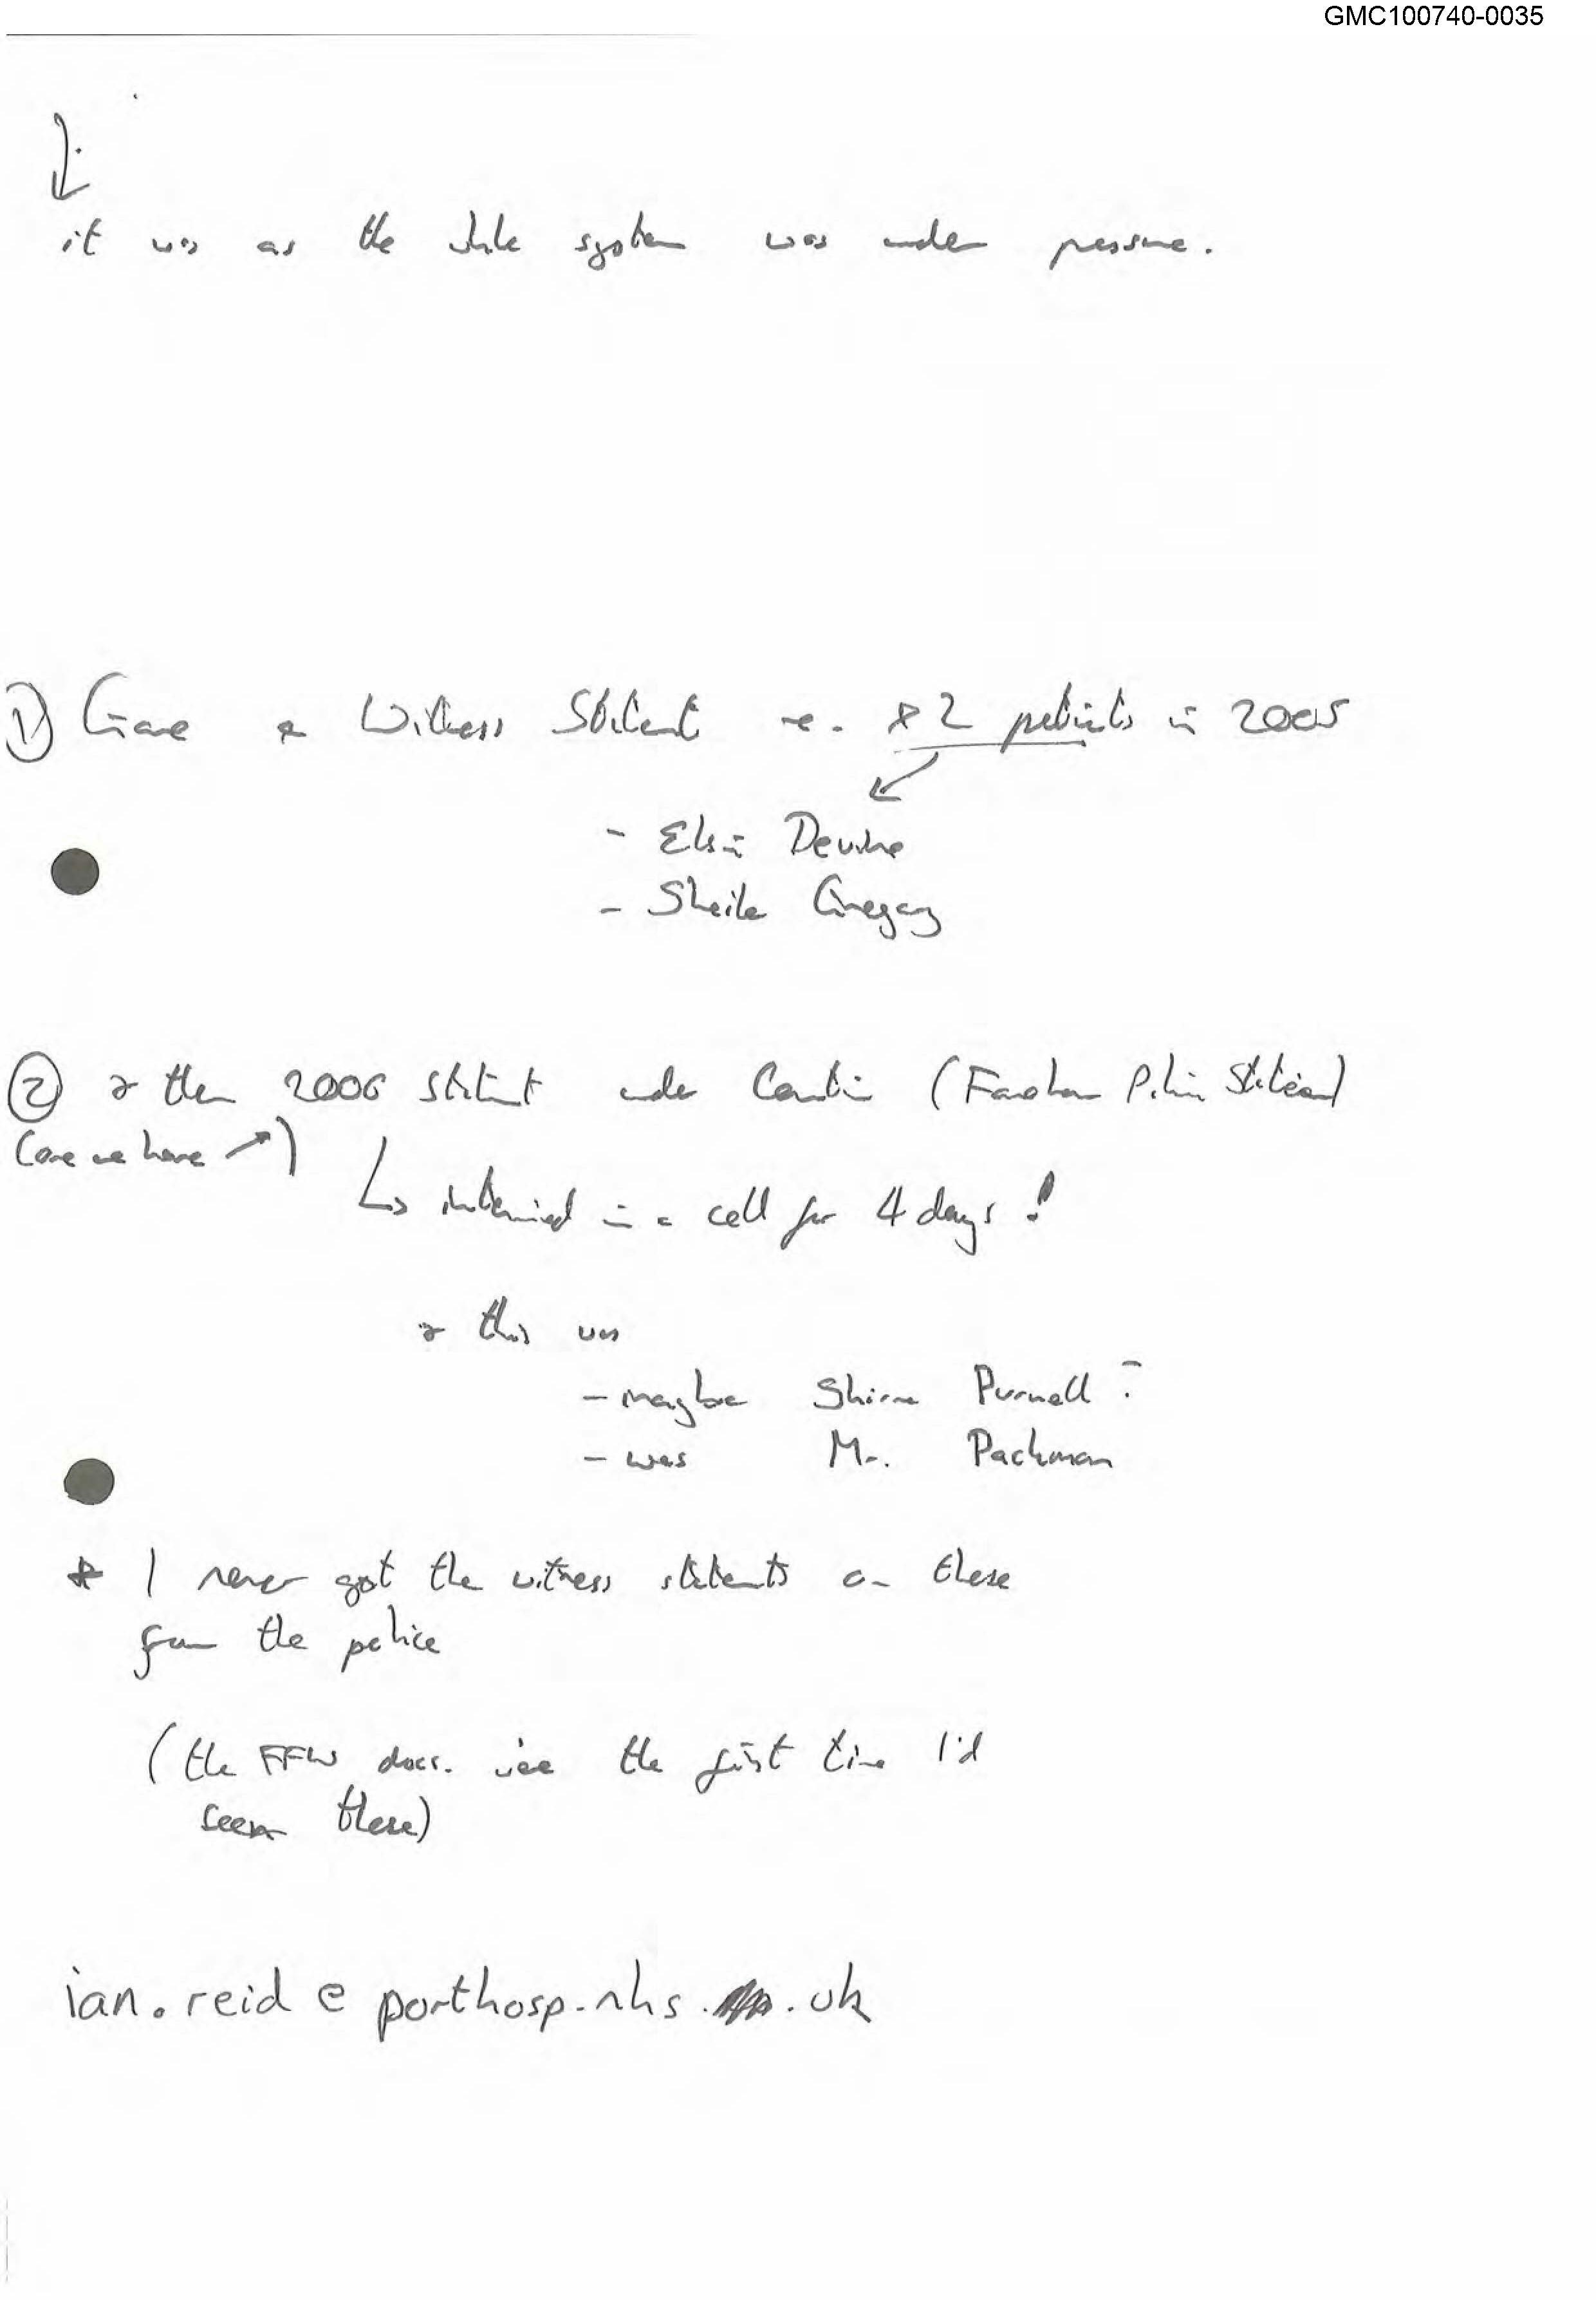 GMC100740-0035
it was as the whole system was under pressure.
1) Gave a Witness Statement re. x2 patients in 2005
- Elsie Devine
- Sheila Gregory
2) & then 2006 statement under Caution (Fareham Police Station)
(one we have ↗)
↳ interviewed in a cell for 4 days!
& this was
- maybe Purnell?
- was Mr. Packman
* I never got the witness statements on these
from the police
(the FFW docs. were the first time I'd
seen these)
ian.reid@porthosp.nhs.uk